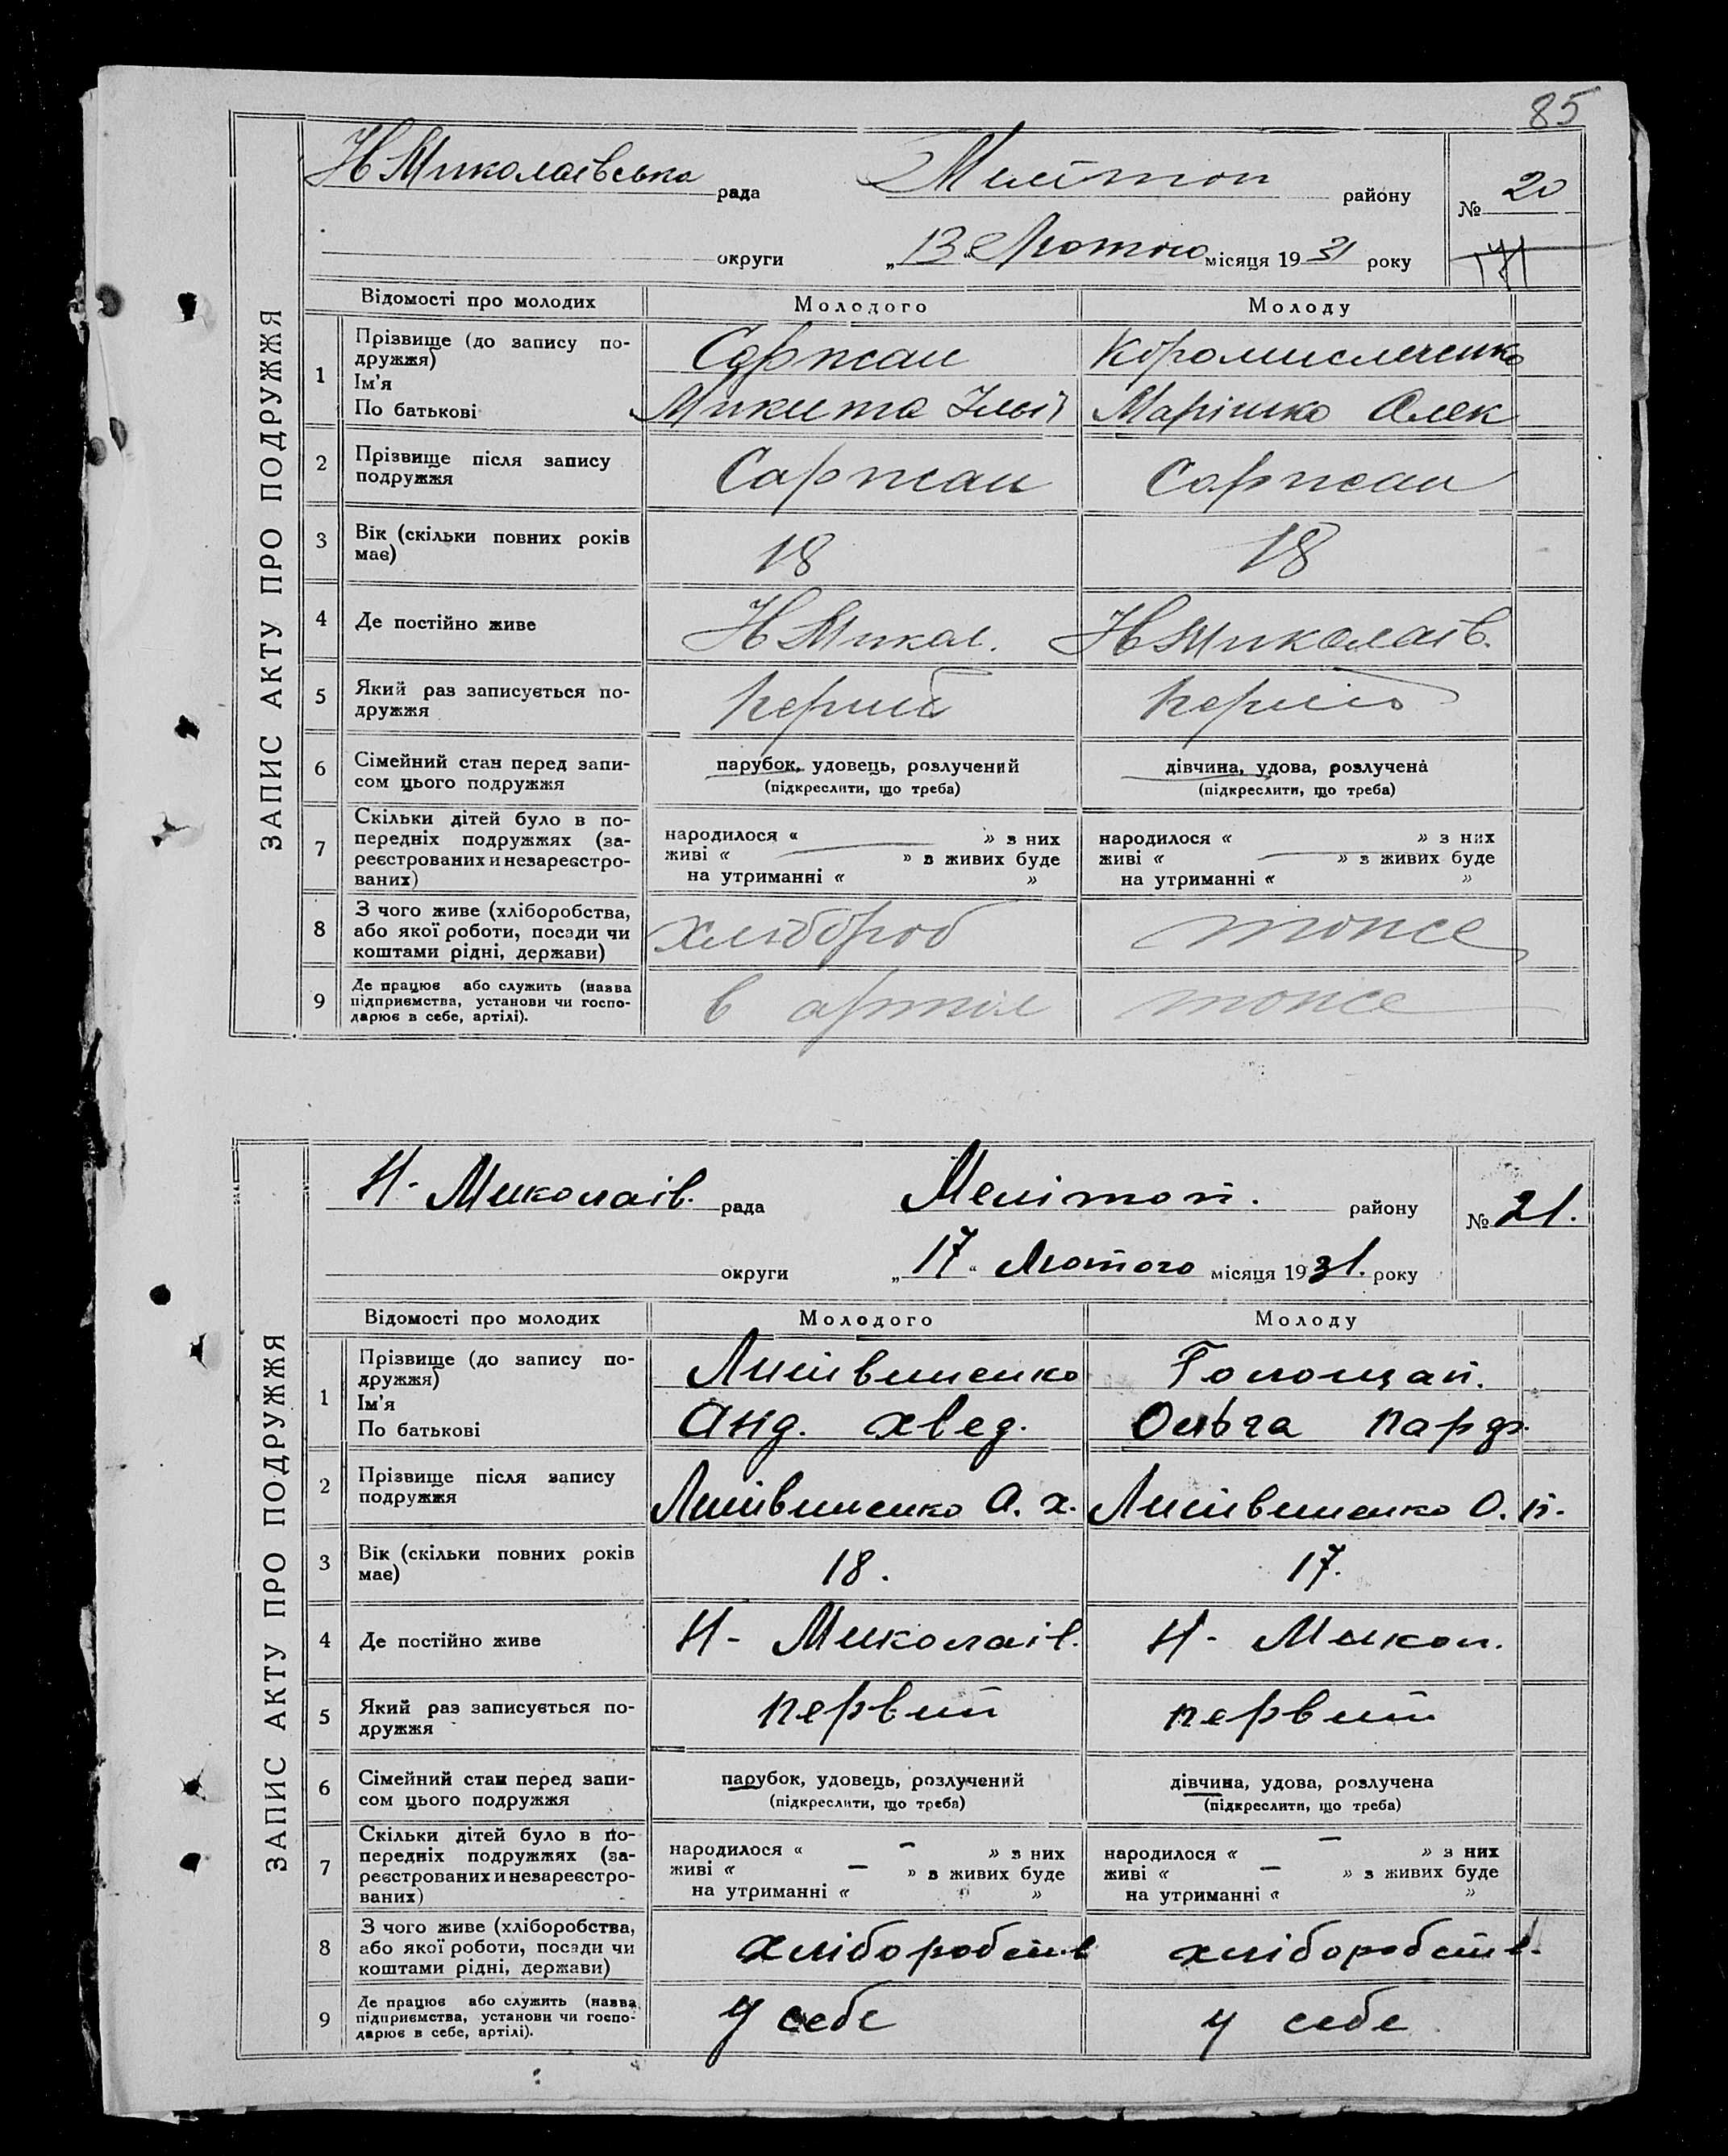 85
ЗАПИС АКТУ ПРО ПОДРУЖЖЯ
Н Миколаівська рада Мелітоп району № 20
округи „13“ Лютого місяця 1931 року 171
Відомості про молодих Молодого Молоду
1 Прізвище (до запису по-
дружжя) Саржан Коромисліченко
Ім'я
По батькові Микита Ілыї Марішка Алек
2 Прізвище після запису
подружжя Саржан Саржан
3 Вік (скільки повних років
має) 18 18
4 Де постійно живе Н Микол. Н Миколаів.
5 Який раз записується по-
дружжя
6 Сімейний стан перед запи-
сом цього подружжя парубок, удовець, розлучений дівчина, удова, розлучена
(підкреслити, що треба) (підкреслити, що треба)
7 Скільки дітей було в по-
передніх подружжях (за-
реєстрованих и незареєстро-
ваних)
народилося « » з них народилося « » з них
живі « » з живих буде живі « » з живих буде
на утриманні « » на утриманні « »
8 З чого живе (хліборобства,
або якої роботи, посади чи
коштами рідні, держави) хлібороб тоже
9 Де працює або служить (назва
підприємства, установи чи госпо-
дарює в себе, артілі). в артіл тоже
ЗАПИС АКТУ ПРО ПОДРУЖЖЯ
Н- Миколаів. рада Мелітоп. району № 21.
округи „17“ Лютого місяця 1931. року
Відомості про молодих Молодого Молоду
1 Прізвище (до запису по-
дружжя) Литвиненко Голощап.
Ім'я
По батькові Анд. Хвед. Ольга Парф.
2 Прізвище після запису
подружжя Литвиненко А. Х. Литвиненко О. П.
3 Вік (скільки повних років
має) 18. 17.
4 Де постійно живе Н- Миколаів. Н- Микол.
5 Який раз записується по-
дружжя первий первий
6 Сімейний стан перед запи-
сом цього подружжя парубок, удовець, розлучений дівчина, удова, розлучена
(підкреслити, що треба) (підкреслити, що треба)
7 Скільки дітей було в по-
передніх подружжях (за-
реєстрованих и незареєстро-
ваних)
народилося « – » з них народилося « – » з них
живі « – » з живих буде живі « – » з живих буде
на утриманні « » на утриманні « »
8 З чого живе (хліборобства,
або якої роботи, посади чи
коштами рідні, держави) хліборобств хліборобств.
9 Де працює або служить (назва
підприємства, установи чи госпо-
дарює в себе, артілі). у себе у себе